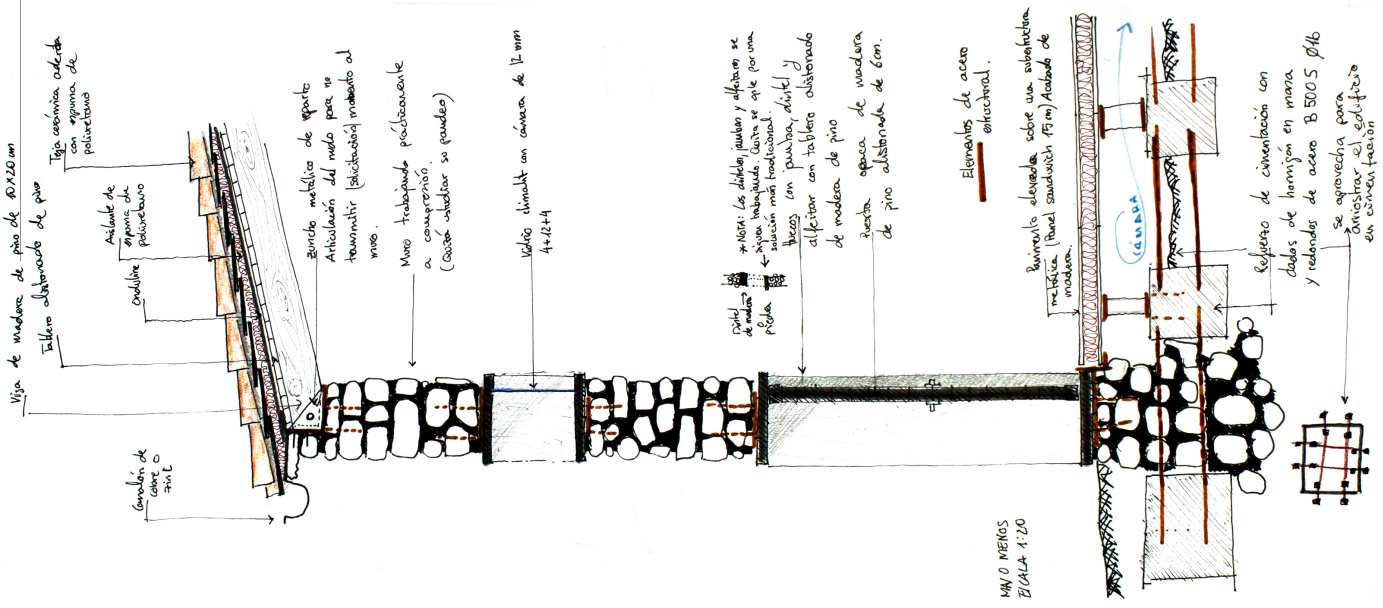 Viga de madera de pino de 10x20 mm
Tablero alistonado de pino
Teja cerámica adherida
con espuma de
poliuretano
Aislante de
espuma de
poliuretano
Onduline
Canalón de
cobre o
zinc
Zuncho metálico de reparto
Articulación del nudo para no
transmitir (solicitación) momento al
muro.
Muro trabajando prácticamente
a compresión.
(Quizá estudiar su pandeo)
Vidrio climalit con cámara de 12 mm
4+12+4
Dintel
de madera
o
piedra
* NOTA: Los dinteles, jambas y alfeizares se
siguen trabajando. Quizá se opte por una
solución más tradicional.
Huecos con jamba, dintel y
alfeizar con tablero alistonado
de madera de pino
Puerta opaca de madera
de pino alistonada de 6cm.
Elementos de acero
estructural.
MAS O MENOS
ESCALA 1:20
Pavimento elevado sobre una subestructura
metálica (Panel sandwich 15 cm) Acabado de
madera.
CÁMARA
Refuerzo de cimentación con
dados de hormigón en masa
y redondos de acero B 500 S Ø16
se aprovecha para
arriostrar el edificio
en cimentación